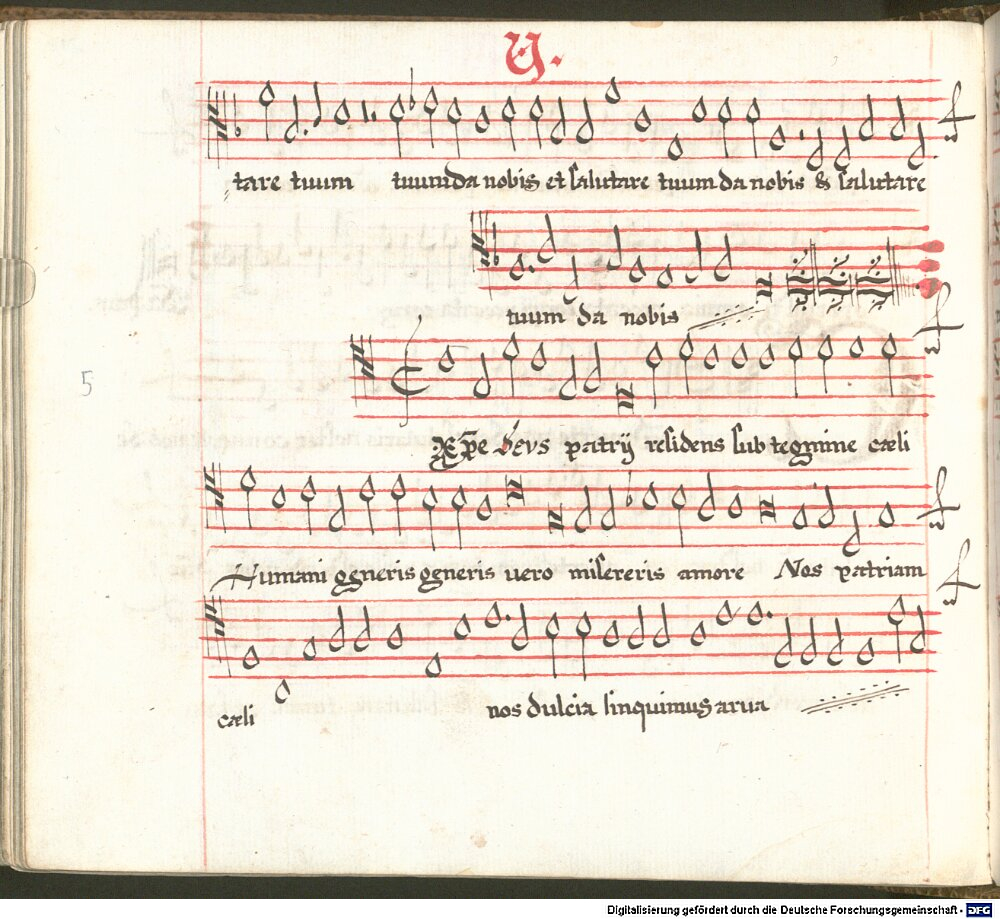 tare tuum tuum da nobis et salutare tuum da nobis & salutare
tuum da nobis
5
Xp̄e deus patrij residens sub tegmine cæli
Humani generis generis uero misereris amore Nos patriam
cæli nos dulcia linquimus arua
Digitalisierung gefördert durch die Deutsche Forschungsgemeinschaft - DFG